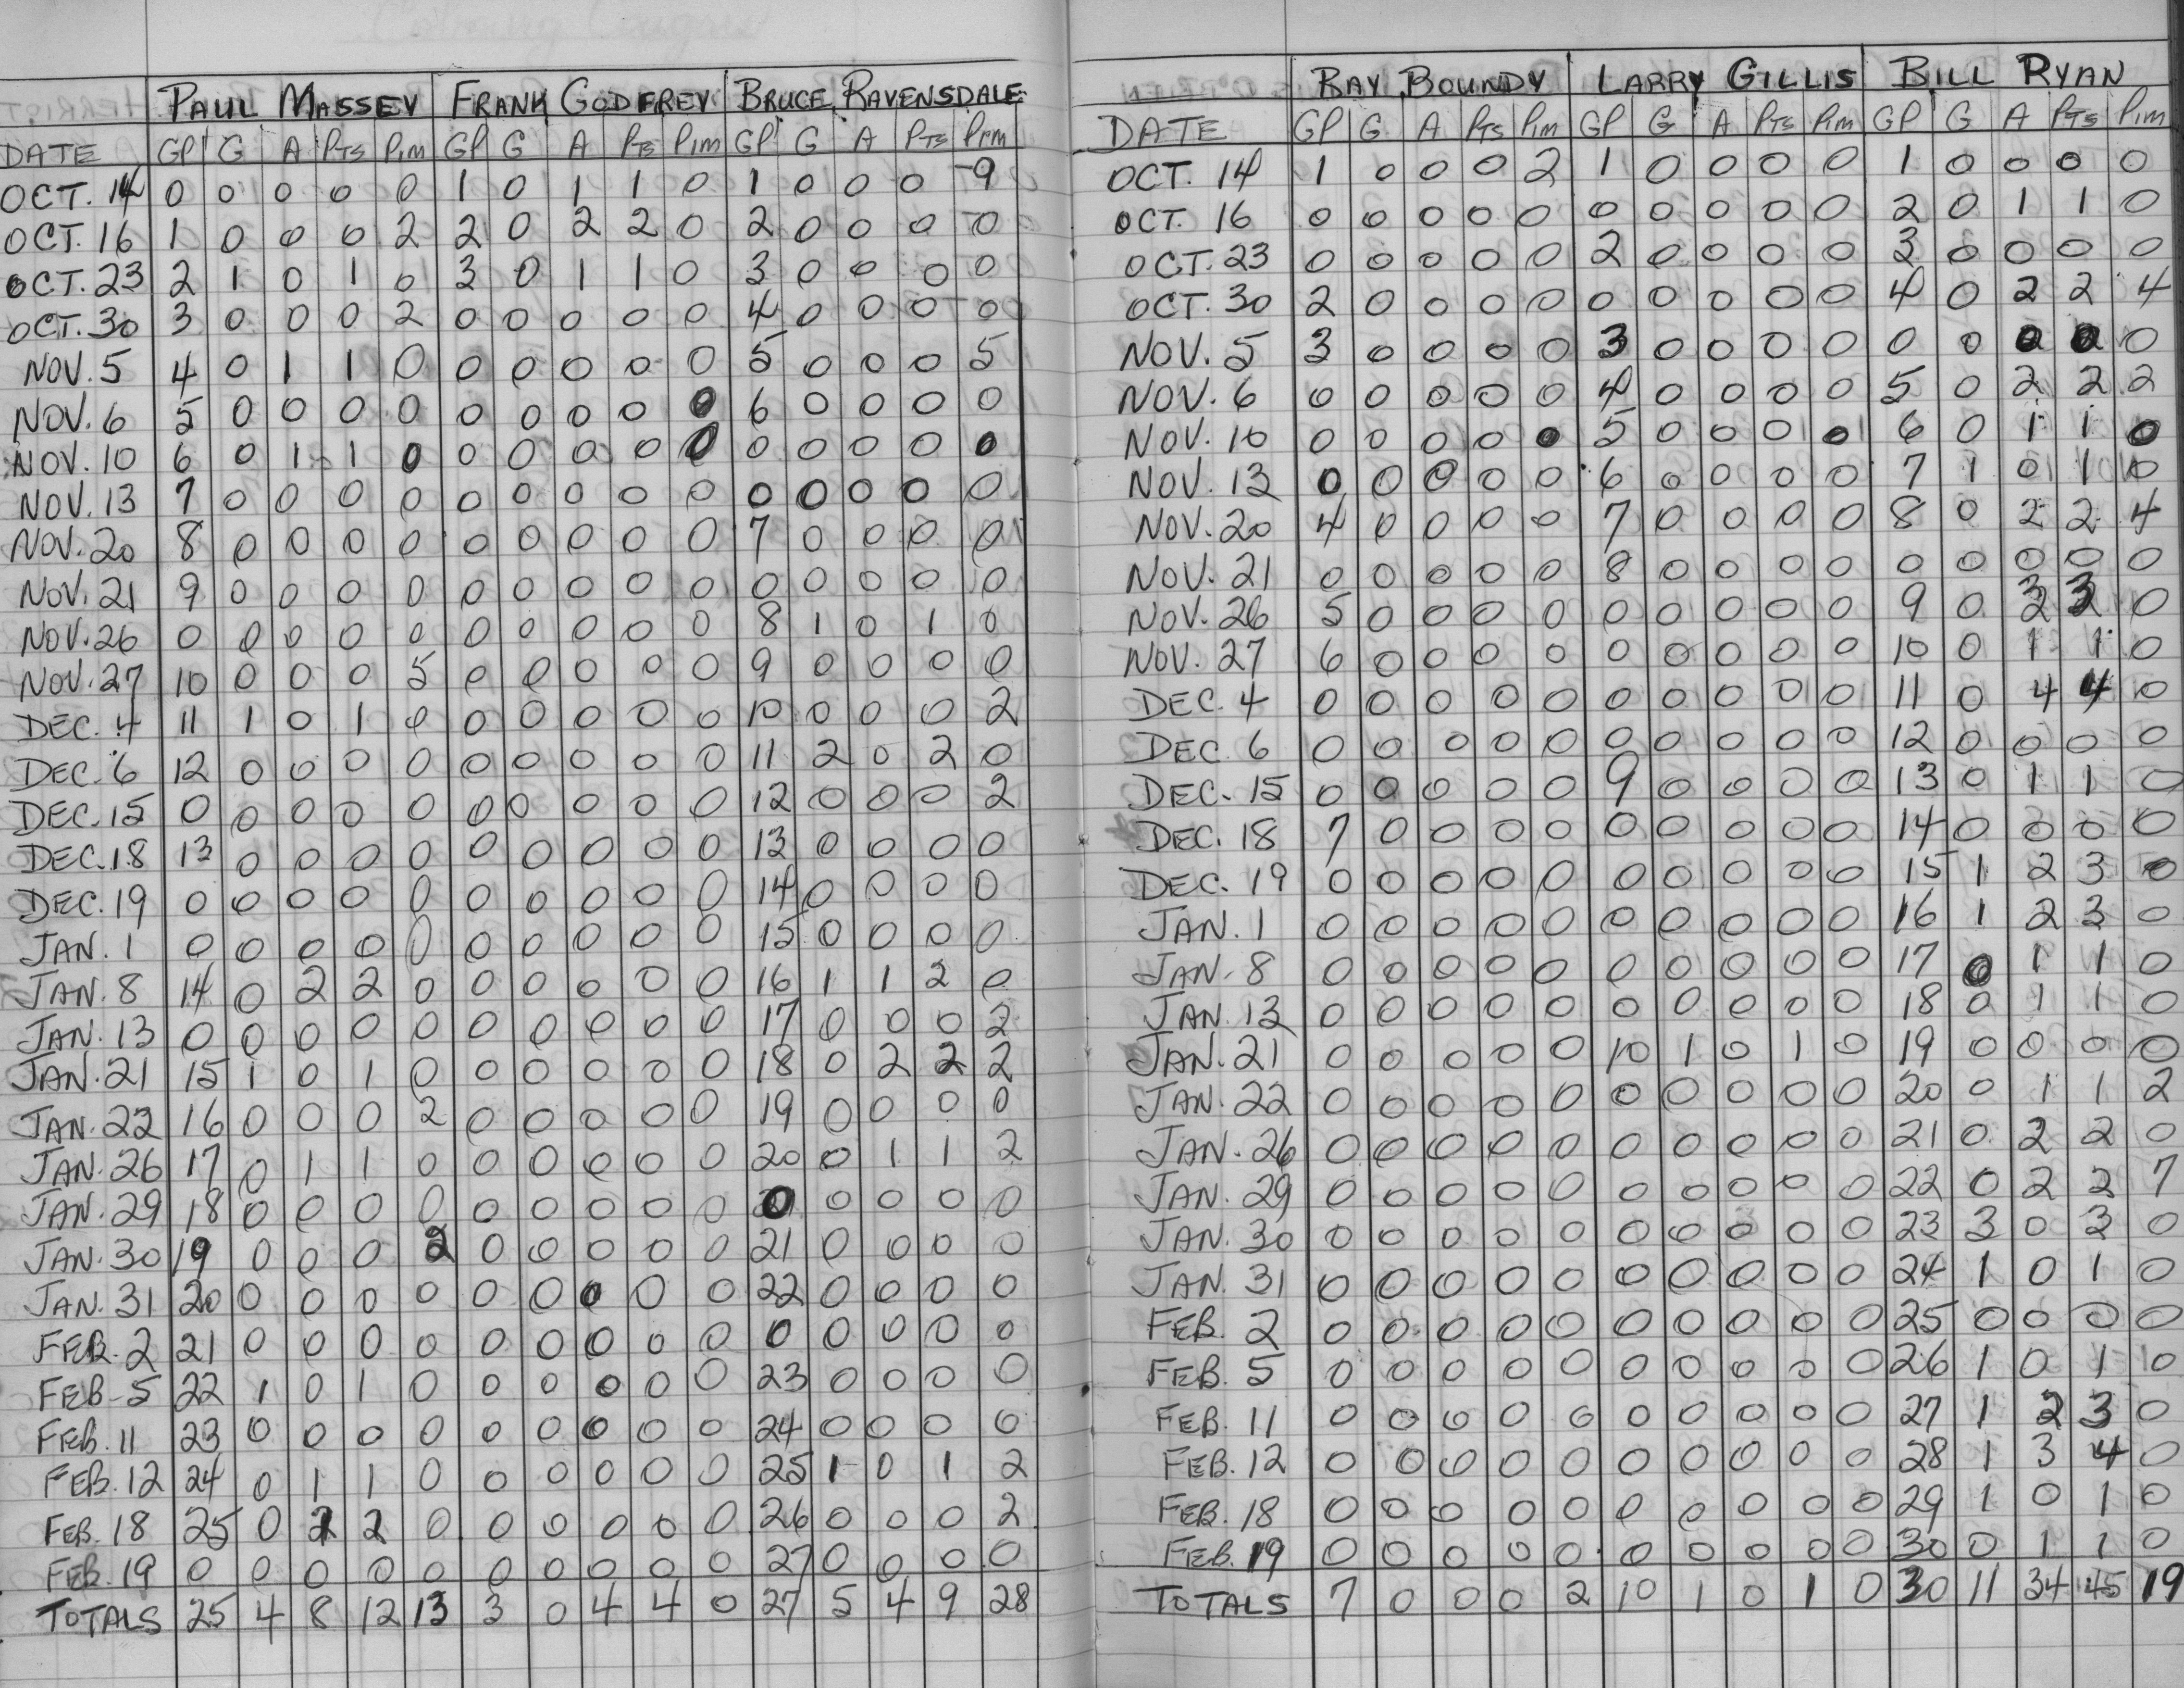 PAUL MASSEY FRANK GODFREY BRUCE RAVENSDALE
DATE GP G A PTS PIM GP G A PTS PIM GP G A PTS PIM
OCT. 14 0 0 0 0 0 1 0 1 1 0 1 0 0 0 9
OCT. 16 1 0 0 0 2 2 0 2 2 0 2 0 0 0 0
OCT. 23 2 1 0 1 0 3 0 1 1 0 3 0 0 0 0
OCT. 30 3 0 0 0 2 0 0 0 0 0 4 0 0 0 0
NOV. 5 4 0 1 1 0 0 0 0 0 0 5 0 0 0 5
NOV. 6 5 0 0 0 0 0 0 0 0 0 6 0 0 0 0
NOV. 10 6 0 1 1 0 0 0 0 0 0 0 0 0 0 0
NOV. 13 7 0 0 0 0 0 0 0 0 0 0 0 0 0 0
NOV. 20 8 0 0 0 0 0 0 0 0 0 7 0 0 0 0
NOV. 21 9 0 0 0 0 0 0 0 0 0 0 0 0 0 0
NOV. 26 0 0 0 0 0 0 0 0 0 0 8 1 0 1 0
NOV. 27 10 0 0 0 5 0 0 0 0 0 9 0 0 0 0
DEC. 4 11 1 0 1 0 0 0 0 0 0 10 0 0 0 2
DEC. 6 12 0 0 0 0 0 0 0 0 0 11 2 0 2 0
DEC. 15 0 0 0 0 0 0 0 0 0 0 12 0 0 0 2
DEC. 18 13 0 0 0 0 0 0 0 0 0 13 0 0 0 0
DEC. 19 0 0 0 0 0 0 0 0 0 0 14 0 0 0 0
JAN. 1 0 0 0 0 0 0 0 0 0 0 15 0 0 0 0
JAN. 8 14 0 2 2 0 0 0 0 0 0 16 1 1 2 0
JAN. 13 0 0 0 0 0 0 0 0 0 0 17 0 0 0 2
JAN. 21 15 1 0 1 0 0 0 0 0 0 18 0 2 2 2
JAN. 22 16 0 0 0 2 0 0 0 0 0 19 0 0 0 0
JAN. 26 17 0 1 1 0 0 0 0 0 0 20 0 1 1 2
JAN. 29 18 0 0 0 0 0 0 0 0 0 0 0 0 0 0
JAN. 30 19 0 0 0 2 0 0 0 0 0 21 0 0 0 0
JAN. 31 20 0 0 0 0 0 0 0 0 0 22 0 0 0 0
FEB. 2 21 0 0 0 0 0 0 0 0 0 0 0 0 0 0
FEB. 5 22 1 0 1 0 0 0 0 0 0 23 0 0 0 0
FEB. 11 23 0 0 0 0 0 0 0 0 0 24 0 0 0 0
FEB. 12 24 0 1 1 0 0 0 0 0 0 25 1 0 1 2
FEB. 18 25 0 2 2 0 0 0 0 0 0 26 0 0 0 2
FEB. 19 0 0 0 0 0 0 0 0 0 0 27 0 0 0 0
TOTALS 25 4 8 12 13 3 0 4 4 0 27 5 4 9 28
RAY BOUNDY LARRY GILLIS BILL RYAN
DATE GP G A PTS PIM GP G A PTS PIM GP G A PTS PIM
OCT. 14 1 0 0 0 2 1 0 0 0 0 1 0 0 0 0
OCT. 16 0 0 0 0 0 0 0 0 0 0 2 0 1 1 0
OCT. 23 0 0 0 0 0 2 0 0 0 0 3 0 0 0 0
OCT. 30 2 0 0 0 0 0 0 0 0 0 4 0 2 2 4
NOV. 5 3 0 0 0 0 3 0 0 0 0 0 0 0 0 0
NOV. 6 0 0 0 0 0 4 0 0 0 0 5 0 2 2 2
NOV. 10 0 0 0 0 0 5 0 0 0 0 6 0 1 1 0
NOV. 13 0 0 0 0 0 6 0 0 0 0 7 1 0 1 0
NOV. 20 4 0 0 0 0 7 0 0 0 0 8 0 2 2 4
NOV. 21 0 0 0 0 0 8 0 0 0 0 0 0 0 0 0
NOV. 26 5 0 0 0 0 0 0 0 0 0 9 0 3 3 0
NOV. 27 6 0 0 0 0 0 0 0 0 0 10 0 1 1 0
DEC. 4 0 0 0 0 0 0 0 0 0 0 11 0 4 4 0
DEC. 6 0 0 0 0 0 0 0 0 0 0 12 0 0 0 0
DEC. 15 0 0 0 0 0 9 0 0 0 0 13 0 1 1 0
DEC. 18 7 0 0 0 0 0 0 0 0 0 14 0 0 0 0
DEC. 19 0 0 0 0 0 0 0 0 0 0 15 1 2 3 0
JAN. 1 0 0 0 0 0 0 0 0 0 0 16 1 2 3 0
JAN. 8 0 0 0 0 0 0 0 0 0 0 17 0 1 1 0
JAN. 13 0 0 0 0 0 0 0 0 0 0 18 0 1 1 0
JAN. 21 0 0 0 0 0 10 1 0 1 0 19 0 0 0 0
JAN. 22 0 0 0 0 0 0 0 0 0 0 20 0 1 1 2
JAN. 26 0 0 0 0 0 0 0 0 0 0 21 0 2 2 0
JAN. 29 0 0 0 0 0 0 0 0 0 0 22 0 2 2 7
JAN. 30 0 0 0 0 0 0 0 0 0 0 23 3 0 3 0
JAN. 31 0 0 0 0 0 0 0 0 0 0 24 1 0 1 0
FEB. 2 0 0 0 0 0 0 0 0 0 0 25 0 0 0 0
FEB. 5 0 0 0 0 0 0 0 0 0 0 26 1 0 1 0
FEB. 11 0 0 0 0 0 0 0 0 0 0 27 1 2 3 0
FEB. 12 0 0 0 0 0 0 0 0 0 0 28 1 3 4 0
FEB. 18 0 0 0 0 0 0 0 0 0 0 29 1 0 1 0
FEB. 19 0 0 0 0 0 0 0 0 0 0 30 0 1 1 0
TOTALS 7 0 0 0 2 10 1 0 1 0 30 11 34 45 19